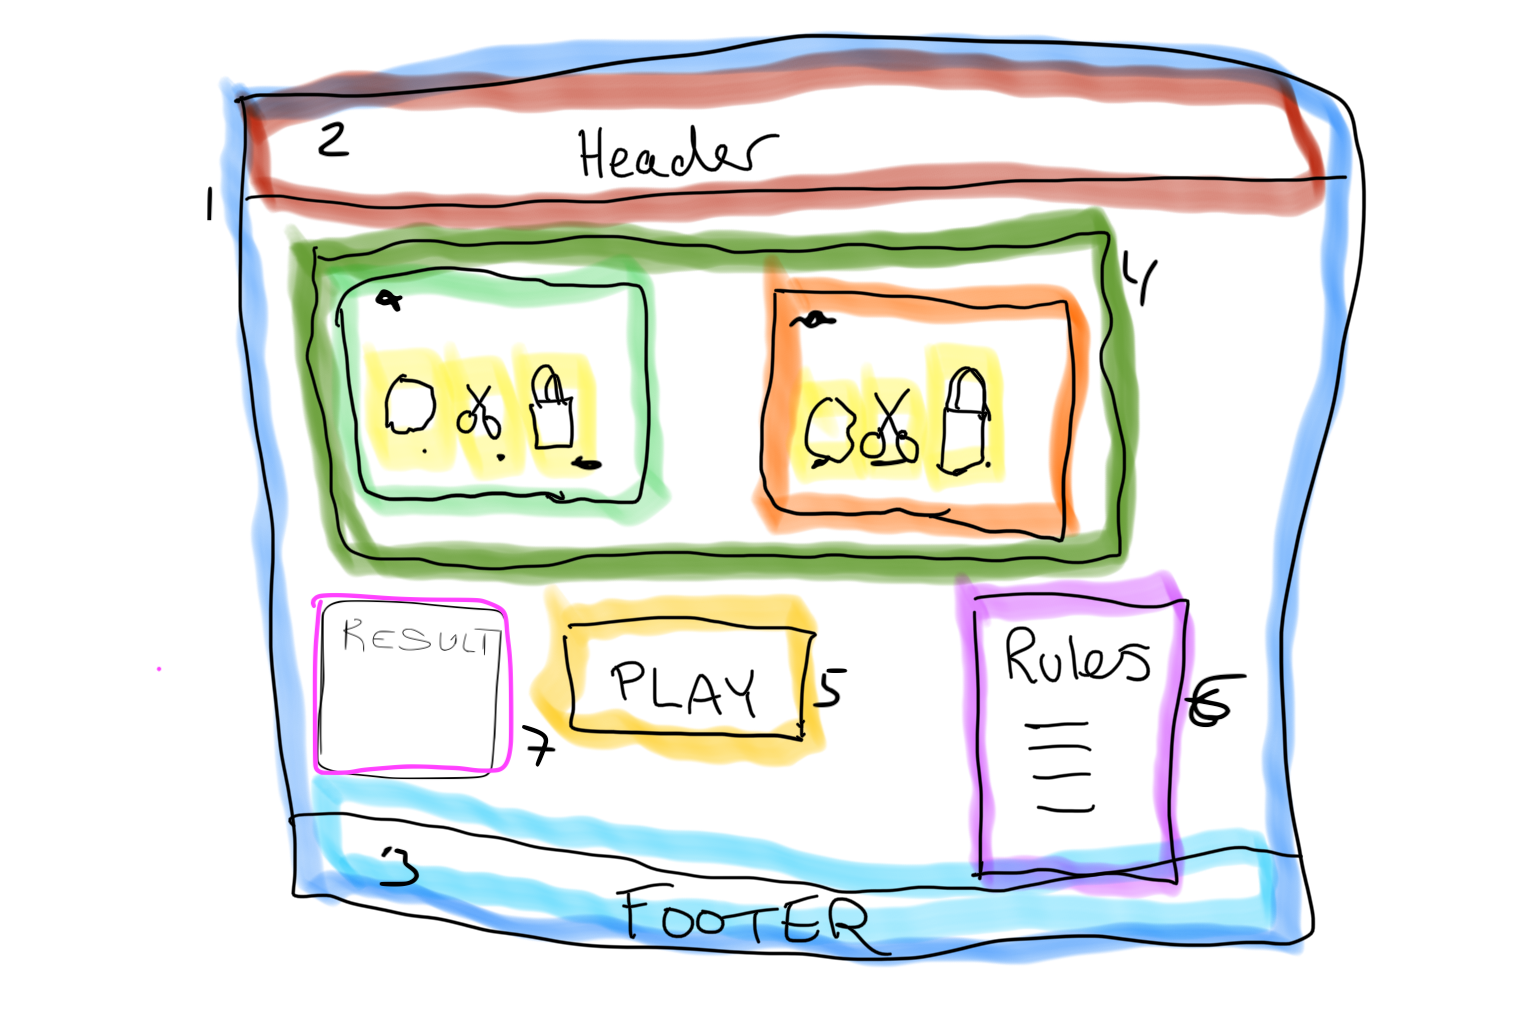 2
Header
1
4
RESULT
PLAY
5
Rules
6
7
3
FOOTER